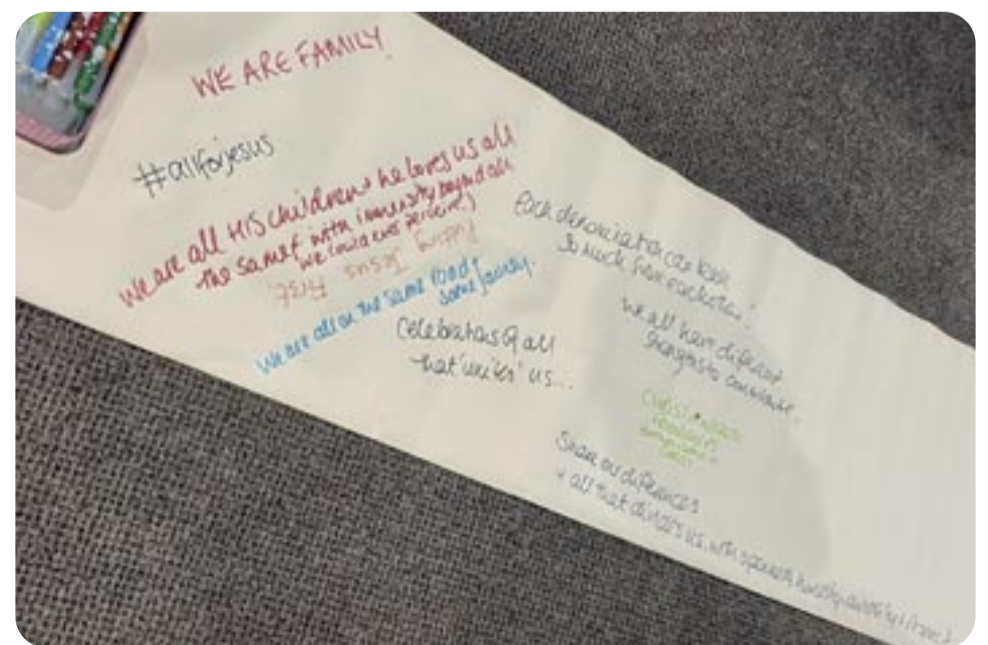 WE ARE FAMILY!
#allforjesus
We are all HIS children & he loves us all
the same & with immensity beyond all
we could ever perceive.)
Putting Jesus
First
We are all on the same road &
same journey.
Celebrations of all
that 'unites' us...
Each denomination can teach
so much from each other!
We all have different
strengths to contribute.
CHRIST
Share our differences
+ all that divides us, with openness honesty